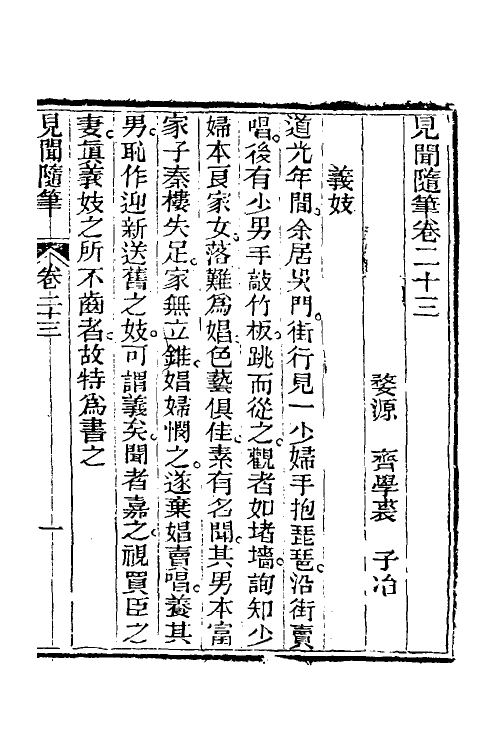 見聞隨筆卷二十三
婺源　齊學裘　子冶
義妓
道光年間。余居吳門。街行見一少婦手抱琵琶。沿街賣
唱。後有少男手敲竹板。跳而從之。觀者如堵墻。詢知少
婦本良家女。落難為娼。色藝俱佳。素有名聞。其男本富
家子。秦樓失足。家無立錐。娼婦憫之。遂棄娼賣唱。養其
男。恥作迎新送舊之妓。可謂義矣。聞者嘉之。視買臣之
妻。眞義妓之所不齒者。故特為書之
見聞隨筆　卷二十三　一